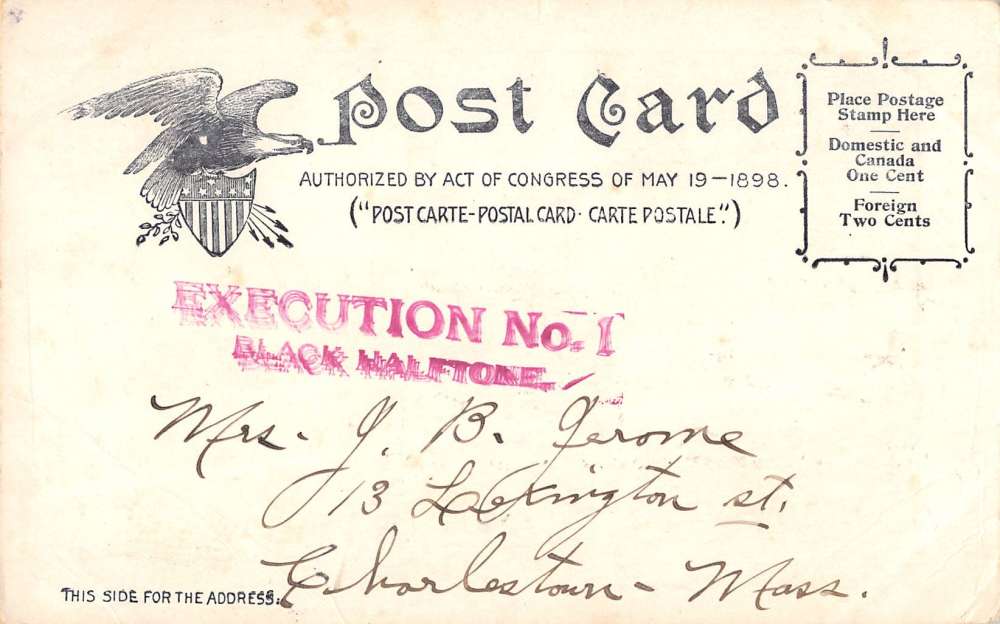 Post Card
Place Postage
Stamp Here
Domestic and
Canada
One Cent
Foreign
Two Cents
AUTHORIZED BY ACT OF CONGRESS OF MAY 19-1898.
("POST CARTE-POSTAL CARD· CARTE POSTALE".)
EXECUTION No. 1
BLACK HALFTONE.
Mrs. J. B. Jerome
13 Lexington st.
Charlestown - Mass.
THIS SIDE FOR THE ADDRESS.